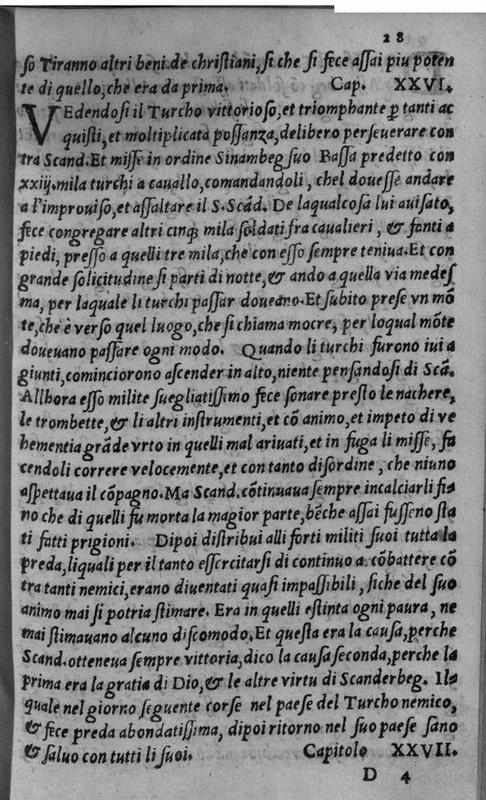 28
so Tiranno altri beni de christiani, si che si fece assai piu poten
te di quello, che era da prima. Cap. XXVI.
VEdendosi il Turcho vittorioso, et triomphante ꝑ tanti ac
quisti, et moltiplicata possanza, delibero perseuerare con
tra Scand. Et misse in ordine Sinambeg suo Bassa predetto con
xxiij. mila turchi a cauallo, comandandoli, chel douesse andare
a l'improuiso, et assaltare il S. Scād. De laqualcosa lui auisato,
fece congregare altri cinq; mila soldati fra caualieri, & fanti a
piedi, presso a quelli tre mila, che con esso sempre teniua. Et con
grande solicitudine si parti di notte, & ando a quella via medes
ma, per laquale li turchi passar doueano. Et subito prese vn mō
te, che è verso quel luogo, che si chiama mocre, per loqual mōte
doueuano passare ogni modo. Quando li turchi furono iui a
giunti, cominciorono ascender in alto, niente pensandosi di Scā.
Allhora esso milite suegliatissimo fece sonare presto le nachere,
le trombette, & li altri instrumenti, et cō animo, et impeto di ve
hementia grāde vrto in quelli mal ariuati, et in fuga li misse, fa
cendoli correre velocemente, et con tanto disordine, che niuno
aspettaua il cōpagno. Ma Scand. cōtinuaua sempre incalciarli fi=
no che di quelli fu morta la magior parte, bēche assai fusseno sta
ti fatti prigioni. Dipoi distribui alli forti militi suoi tutta la
preda, liquali per il tanto essercitarsi di continuo a cōbattere cō
tra tanti nemici, erano diuentati quasi impassibili, siche del suo
animo mai si potria stimare. Era in quelli estinta ogni paura, ne
mai stimauano alcuno discomodo. Et questa era la causa, perche
Scand. otteneua sempre vittoria, dico la causa seconda, perche la
prima era la gratia di Dio, & le altre virtu di Scanderbeg. Il=
quale nel giorno seguente corse nel paese del Turcho nemico,
& fece preda abondatissima, dipoi ritorno nel suo paese sano
& saluo con tutti li suoi. Capitolo XXVII.
D 4